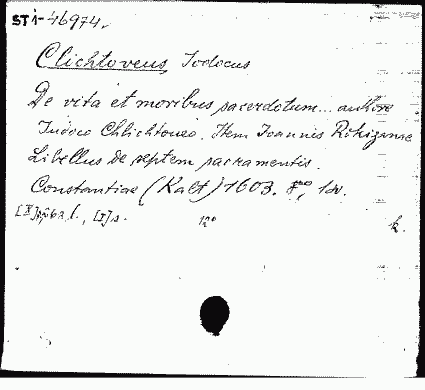 ST 1-46974.
Clichtoveus, Jodocus
De vita et moribus sacerdotum... authore
Judoco Chlichtoueo. Item Joannis Rokizanae
Libellus de septem sacramentis.
Constantiae (Kalt) 1603. 8°, 1 dv.
l., [I] s.
12°
k.